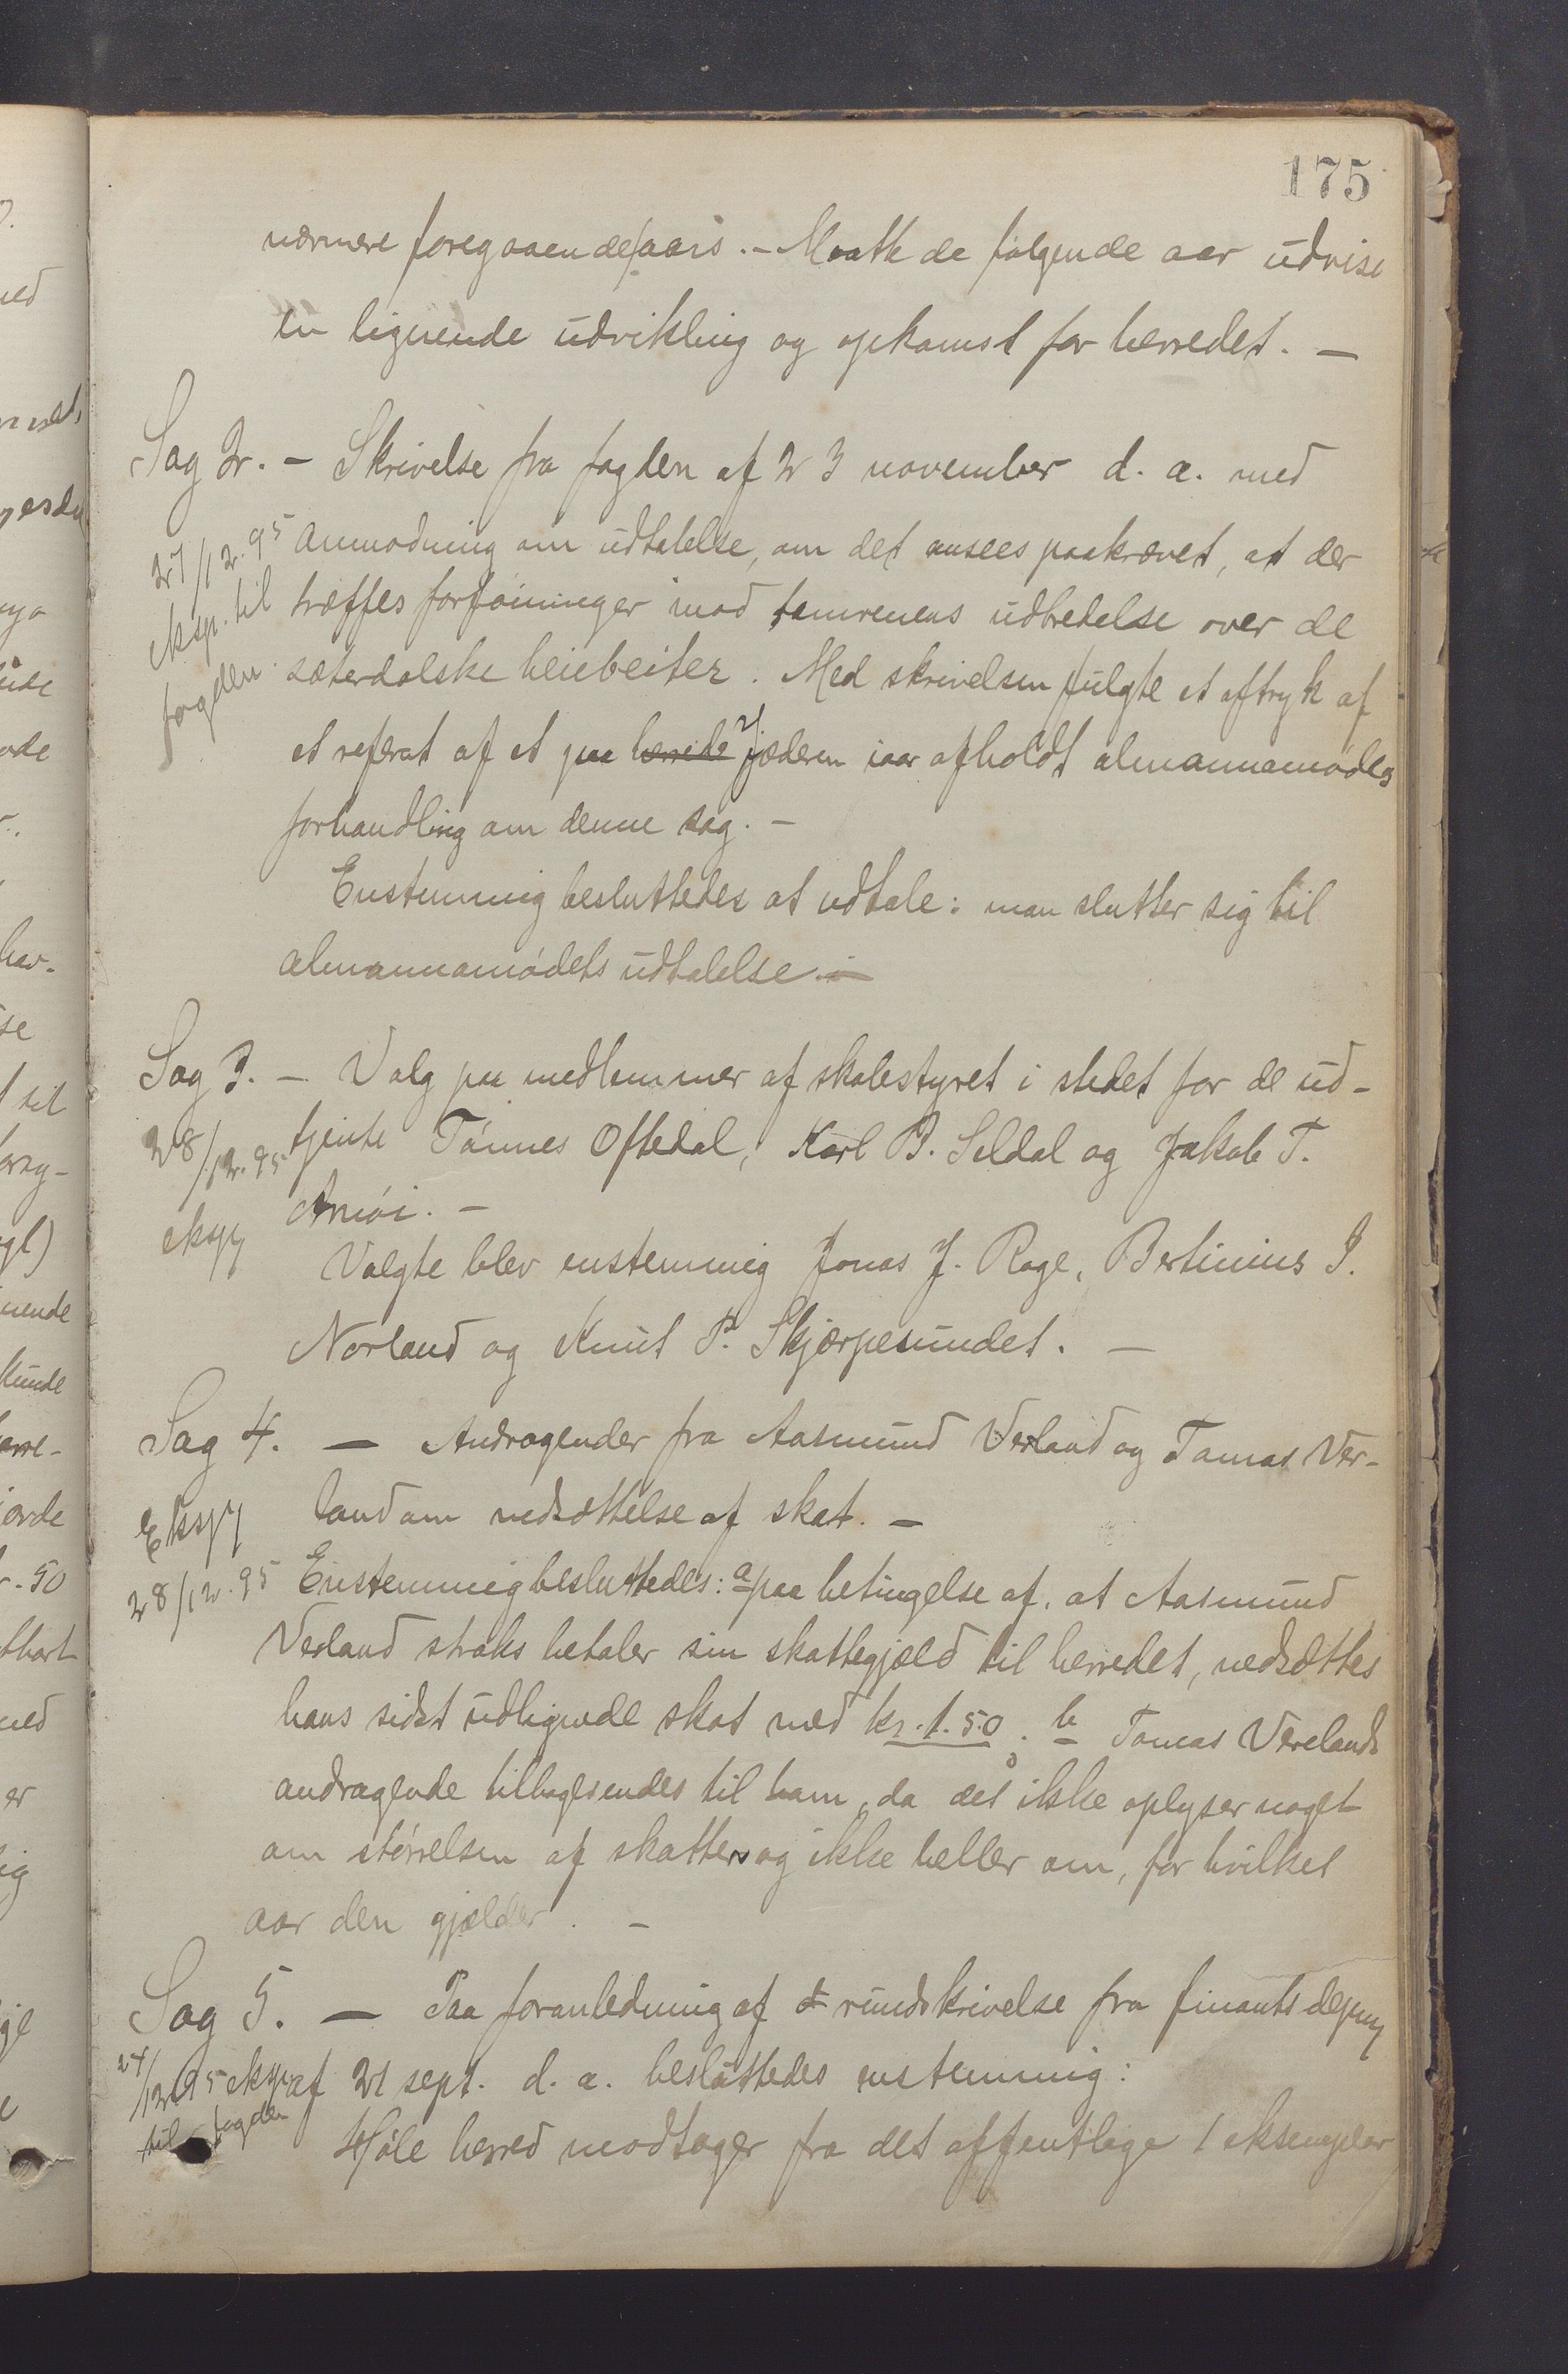 175
nærmere foregaaende aars. - Maatte de følgende aar udvise
en lignende udvikling og opkomst for herredet. -
Sag 2. - Skrivelse fra fogden af 23 november d. a. med
27/12.95 anmodning om udtalelse, om det ansees paakrævet, at der
eksp. til træffes forføininger mod tamrenens udbredelse over de
fogden. sæterdalske heiebeiter. Med skrivelsen fulgte et aftryk af
et referat af et paa herrede Jæderen iaar afholdt almannamødes
forhandling om denne sag. -
Enstemmig besluttedes at udtale: man slutter sig til
almannamødets udtalelse. -
Sag 3. - Valg paa medlemmer af skolestyret i stedet for de ud-
28/12.95 tjente Tønnes Oftedal, Karl B. Seldal og Jakob T.
eksp Amøi. -
Valgte blev enstemmig Jonas J. Rage, Bertinius I.
Norland og Knut P. Skjørpesundet. -
Sag 4. - Andragender fra Aasmund Verland og Tomas Ver-
Eksp land om nedsættelse af skat. -
28/12.95 Enstemmig besluttedes: a paa betingelse af, at Aasmund
Verland straks betaler sin skattegjæld til herredet, nedsættes
hans sidst udlignede skat med kr. 1.50. b Tomas Verelands
andragende tilbagesendes til ham, da det ikke oplyser noget
om størrelsen af skatten og ikke heller om, for hvilket
aar den gjælder. -
Sag 5. - Paa foranledning af rundskrivelse fra finantsdep
24/12 95 eksp af 21 sept. d. a. besluttedes enstemmig:
til fogden
Høle herred modtager fra det offentlige 1 eksemplar